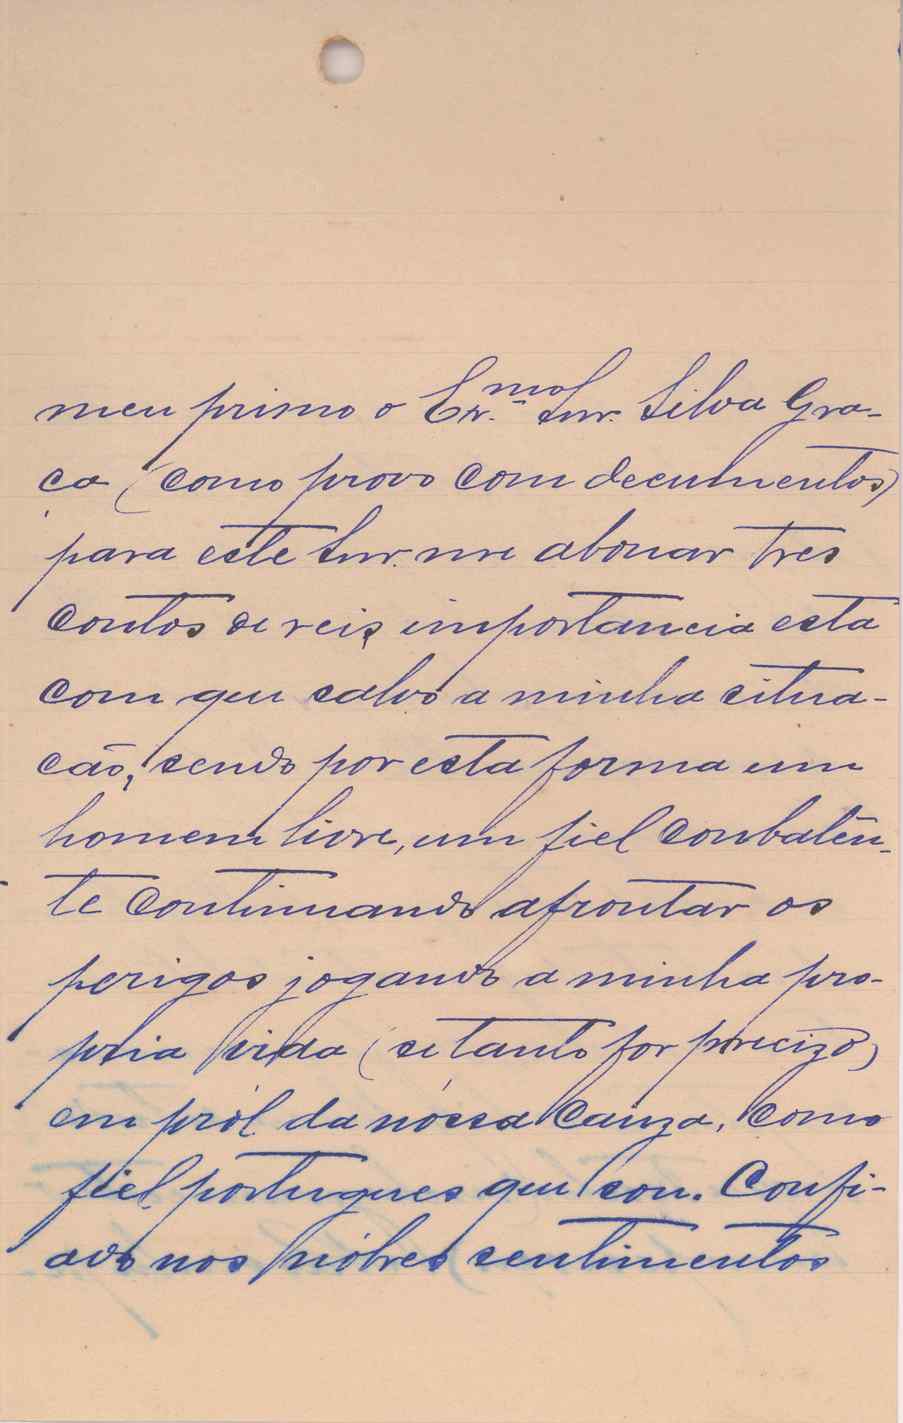 meu primo o Ex.mo Snr. Silva Gra-
ça (como provo com decumentos)
para este Snr. me abonar tres
contos de reis, importancia esta
com que salvo a minha situa-
cão, sendo por esta forma um
homem livre, um fiel conbatên-
te continuando afrontar os
perigos jogando a minha pro-
pria vida (se tanto for precizo)
em pról da nóssa cauza, como
fiel portugues que sou. Confi-
ado nos nóbres sentimentos